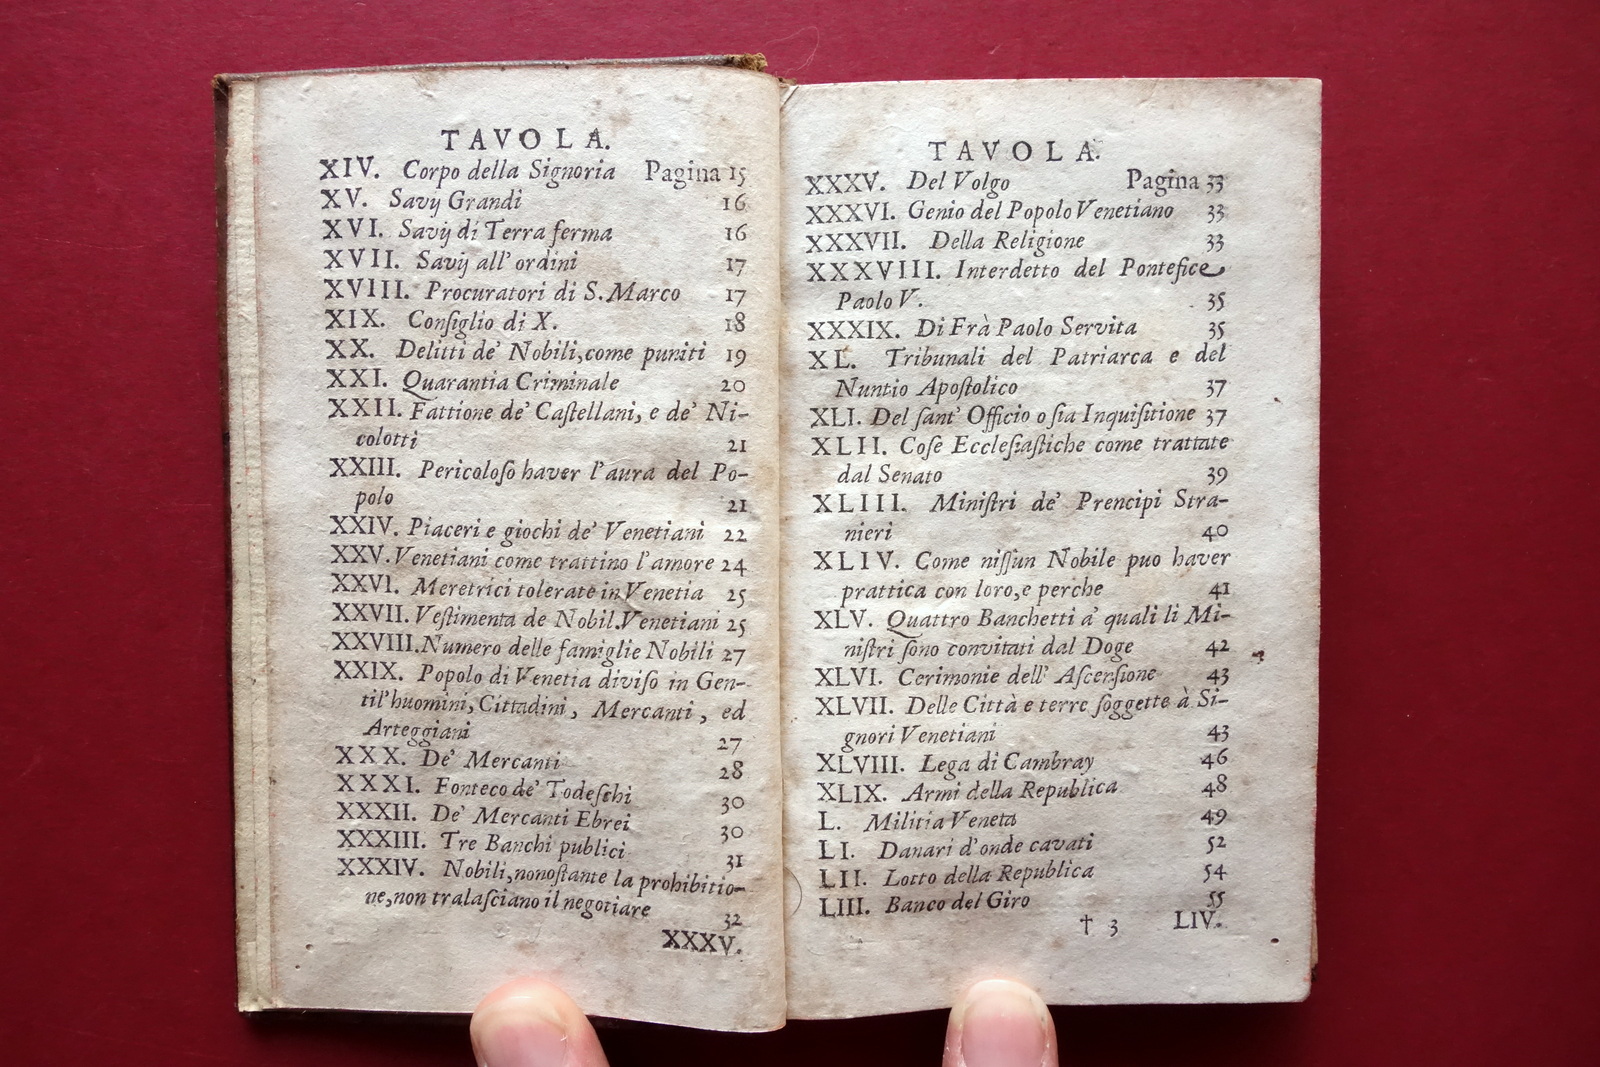 TAVOLA.
XIV. Corpo della Signoria Pagina 15
XV. Savij Grandi 16
XVI. Savij di Terra ferma 16
XVII. Savij all' ordini 17
XVIII. Procuratori di S. Marco 17
XIX. Conſiglio di X. 18
XX. Delitti de' Nobili, come puniti 19
XXI. Quarantia Criminale 20
XXII. Fattione de' Caſtellani, e de' Ni-
colotti 21
XXIII. Pericoloſo haver l'aura del Po-
polo 21
XXIV. Piaceri e giochi de' Venetiani 22
XXV. Venetiani come trattino l'amore 24
XXVI. Meretrici tolerate in Venetia 25
XXVII. Veſtimenta de Nobil. Venetiani 25
XXVIII. Numero delle famiglie Nobili 27
XXIX. Popolo di Venetia diviſo in Gen-
til'huomini, Cittadini, Mercanti, ed
Arteggiani 27
XXX. De' Mercanti 28
XXXI. Fonteco de' Todeſchi 30
XXXII. De' Mercanti Ebrei 30
XXXIII. Tre Banchi publici 31
XXXIV. Nobili, nonoſtante la prohibitio-
ne, non tralaſciano il negotiare 32
XXXV.
TAVOLA.
XXXV. Del Volgo Pagina 33
XXXVI. Genio del Popolo Venetiano 33
XXXVII. Della Religione 33
XXXVIII. Interdetto del Pontefice
Paolo V. 35
XXXIX. Di Frà Paolo Servita 35
XL. Tribunali del Patriarca e del
Nuntio Apoſtolico 37
XLI. Del ſant' Officio o ſia Inquiſitione 37
XLII. Coſe Eccleſiaſtiche come trattate
dal Senato 39
XLIII. Miniſtri de' Prencipi Stra-
nieri 40
XLIV. Come niſſun Nobile puo haver
prattica con loro, e perche 41
XLV. Quattro Banchetti a' quali li Mi-
niſtri ſono convitati dal Doge 42
XLVI. Cerimonie dell' Aſcenſione 43
XLVII. Delle Città e terre ſoggette à Si-
gnori Venetiani 43
XLVIII. Lega di Cambray 46
XLIX. Armi della Republica 48
L. Militia Veneta 49
LI. Danari d'onde cavati 52
LII. Lotto della Republica 54
LIII. Banco del Giro 55
† 3 LIV.